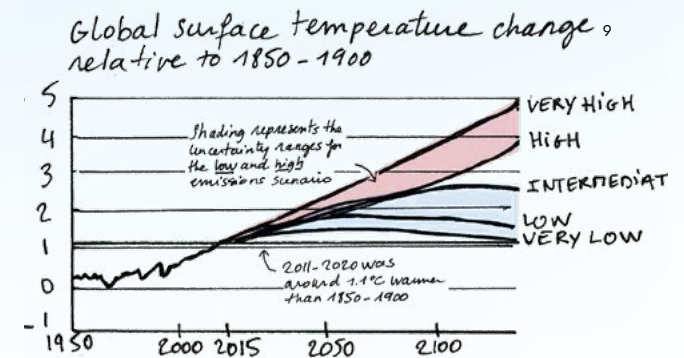 Global surface temperature change 9
relative to 1850-1900
5
4
3
2
1
0
-1
Shading represents the
uncertainty ranges for
the low and high
emissions scenario
VERY HIGH
HIGH
INTERMEDIAT
LOW
VERY LOW
2011-2020 was
around 1.1°C warmer
than 1850-1900
1950 2000 2015 2050 2100